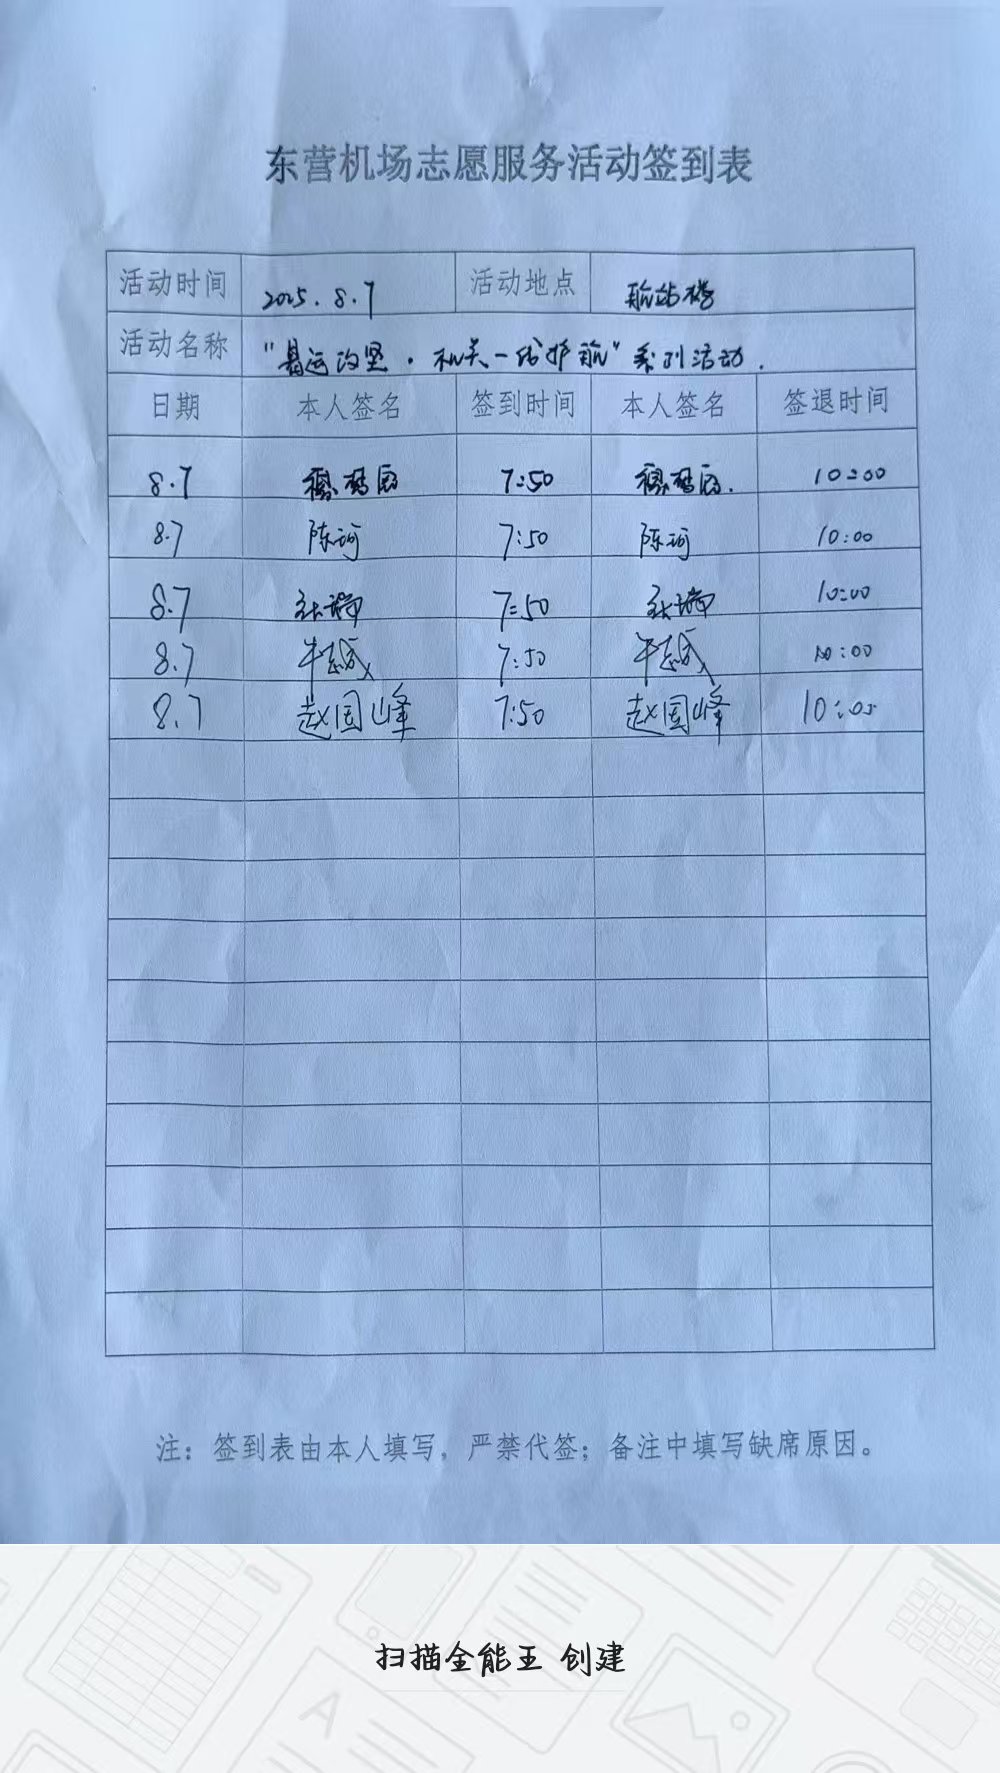 东营机场志愿服务活动签到表
活动时间 2025.8.7 活动地点 航站楼
活动名称 "暑运攻坚·机关一线护航"系列活动.
日期 本人签名 签到时间 本人签名 签退时间
8.7 7:50 10:00
8.7 陈珂 7:50 陈珂 10:00
8.7 张瑞 7:50 张瑞 10:00
8.7 牛志成 7:50 牛志成 10:00
8.7 赵国峰 7:50 赵国峰 10:05
注：签到表由本人填写，严禁代签；备注中填写缺席原因。
扫描全能王 创建